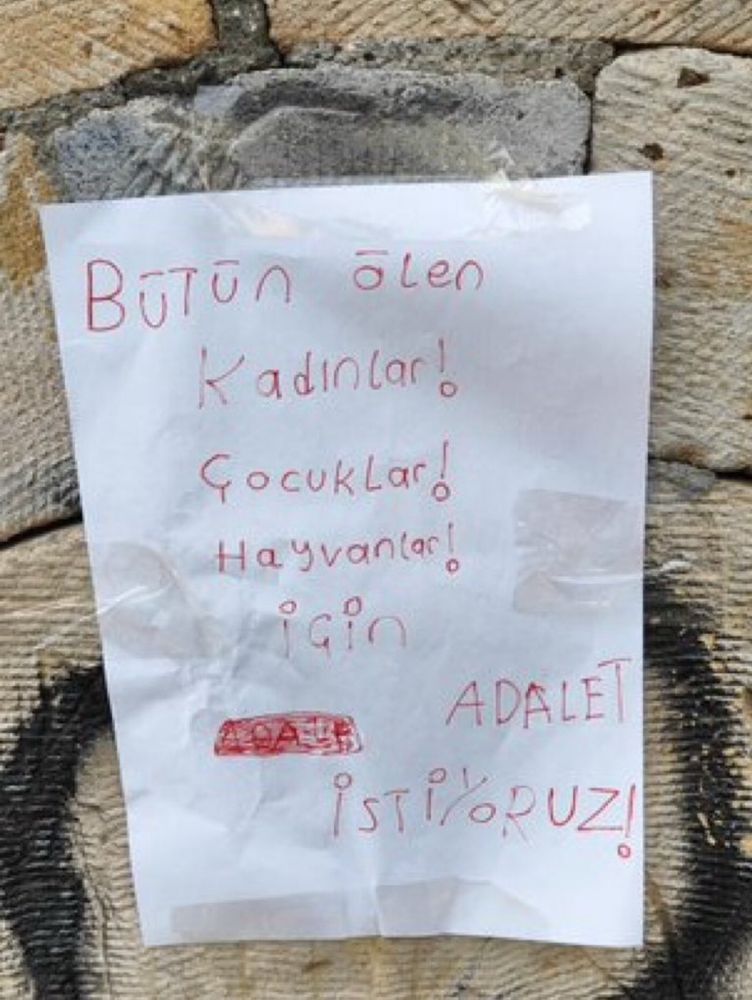 BÜTÜn ölen
Kadınlar!
Çocuklar!
Hayvanlar!
için
ADALET
İSTİYORUZ!